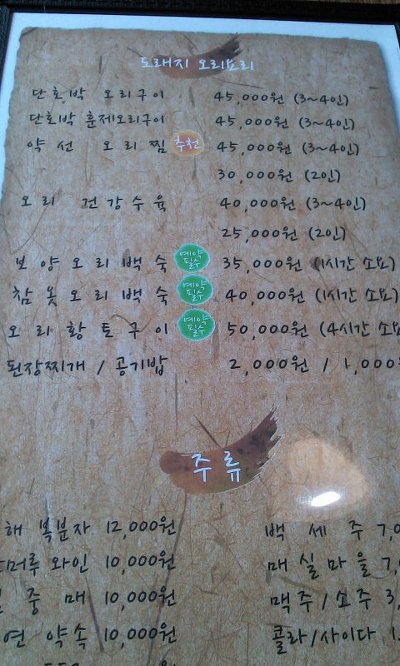 도래지 오리요리
단호박 오리구이 45,000원 (3~4인)
단호박 훈제오리구이 45,000원 (3~4인)
약선 오리찜 추천 45,000원 (3~4인)
30,000원 (2인)
오리 건강수육 40,000원 (3~4인)
25,000원 (2인)
보양오리백숙 예약필수 35,000원 (1시간 소요)
참옻오리백숙 예약필수 40,000원 (1시간 소요)
오리황토구이 예약필수 50,000원 (4시간 소요
된장찌개 / 공기밥 2,000원 / 1,000원
주류
해 복분자 12,000원 백세주 7,0
머루와인 10,000원 매실마을 7,0
중매 10,000원 맥주/소주 3,
연 약속 10,000원 콜라/사이다 1.